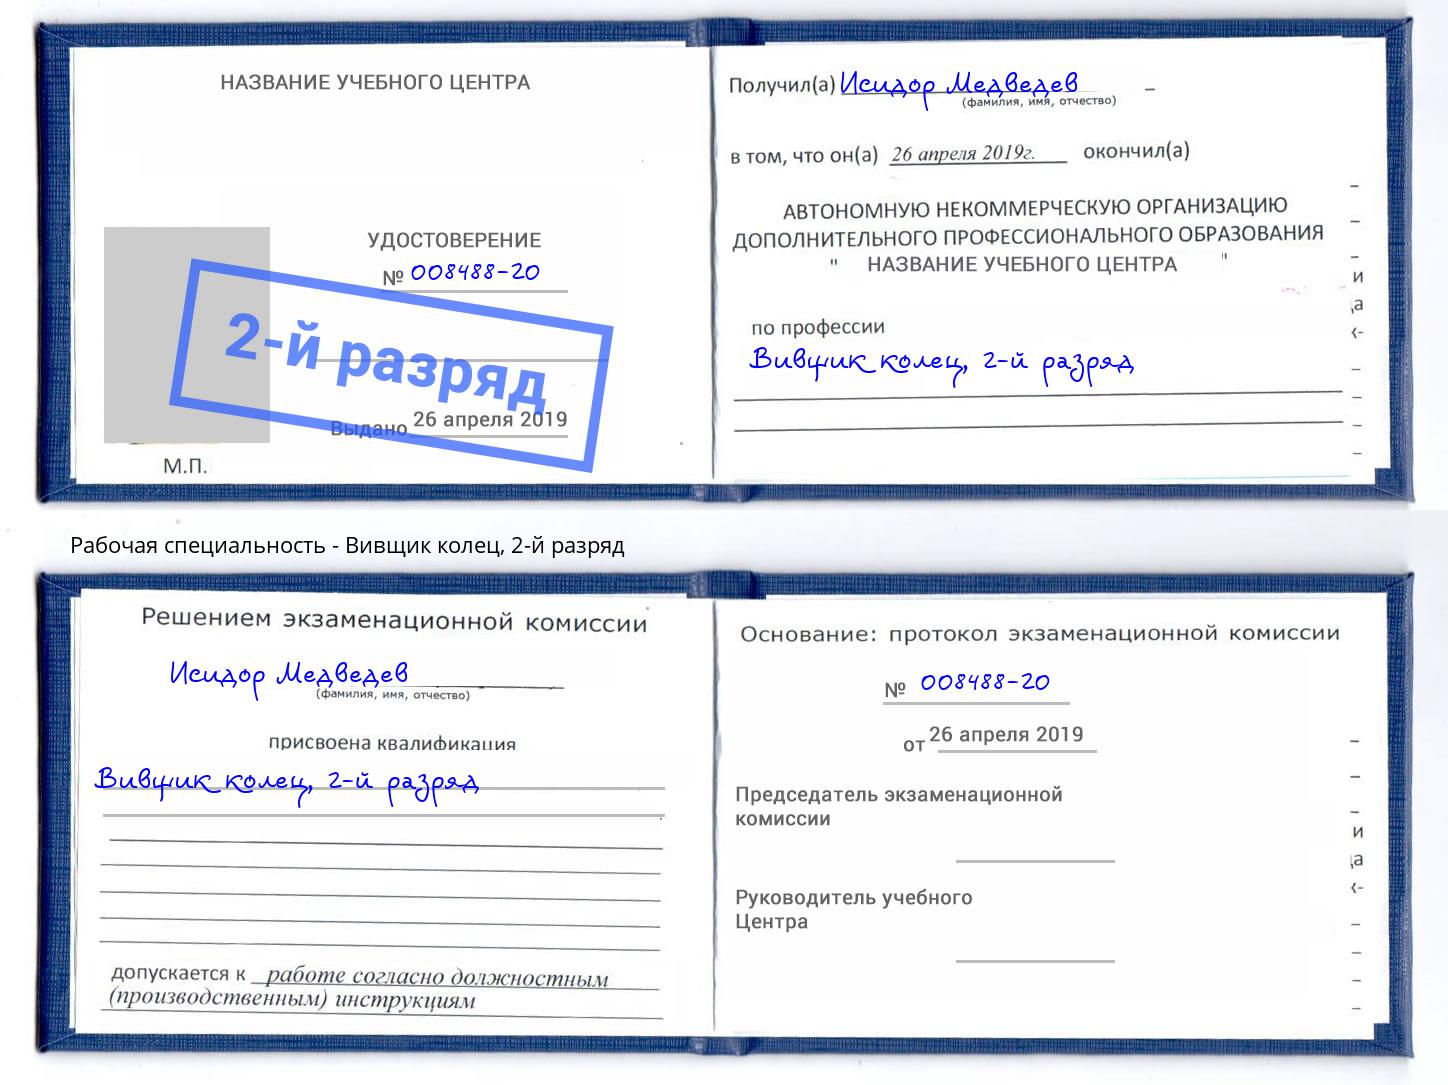 НАЗВАНИЕ УЧЕБНОГО ЦЕНТРА
УДОСТОВЕРЕНИЕ
№ 008488-20
2-й разряд
Выдано 26 апреля 2019
М.П.
Получил(а) Исидор Медведев
(фамилия, имя, отчество)
в том, что он(а) 26 апреля 2019г. окончил(а)
АВТОНОМНУЮ НЕКОММЕРЧЕСКУЮ ОРГАНИЗАЦИЮ
ДОПОЛНИТЕЛЬНОГО ПРОФЕССИОНАЛЬНОГО ОБРАЗОВАНИЯ
" НАЗВАНИЕ УЧЕБНОГО ЦЕНТРА "
по профессии
Вивщик колец, 2-й разряд
Рабочая специальность - Вивщик колец, 2-й разряд
Решением экзаменационной комиссии
Исидор Медведев
(фамилия, имя, отчество)
присвоена квалификация
Вивщик колец, 2-й разряд
допускается к работе согласно должностным
(производственным) инструкциям
Основание: протокол экзаменационной комиссии
№ 008488-20
от 26 апреля 2019
Председатель экзаменационной
комиссии
Руководитель учебного
Центра